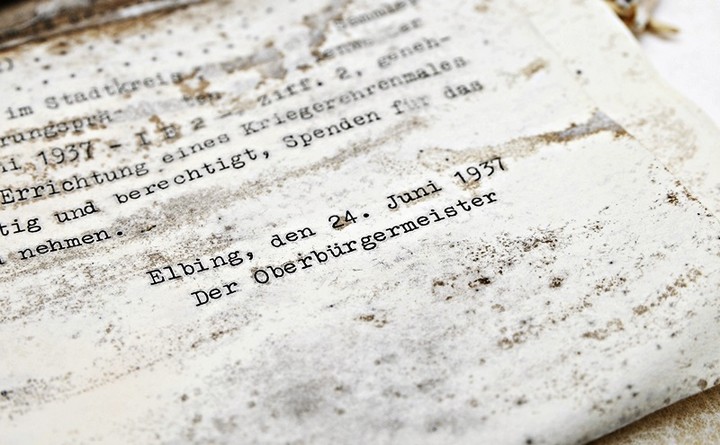 im Stadtkreis
ten Ziff. 2, geneh-
1937 - I E 2 -
Errichtung eines Kriegerehrenmales
tig und berechtigt, Spenden für das
nehmen.
Elbing, den 24. Juni 1937
Der Oberbürgermeister